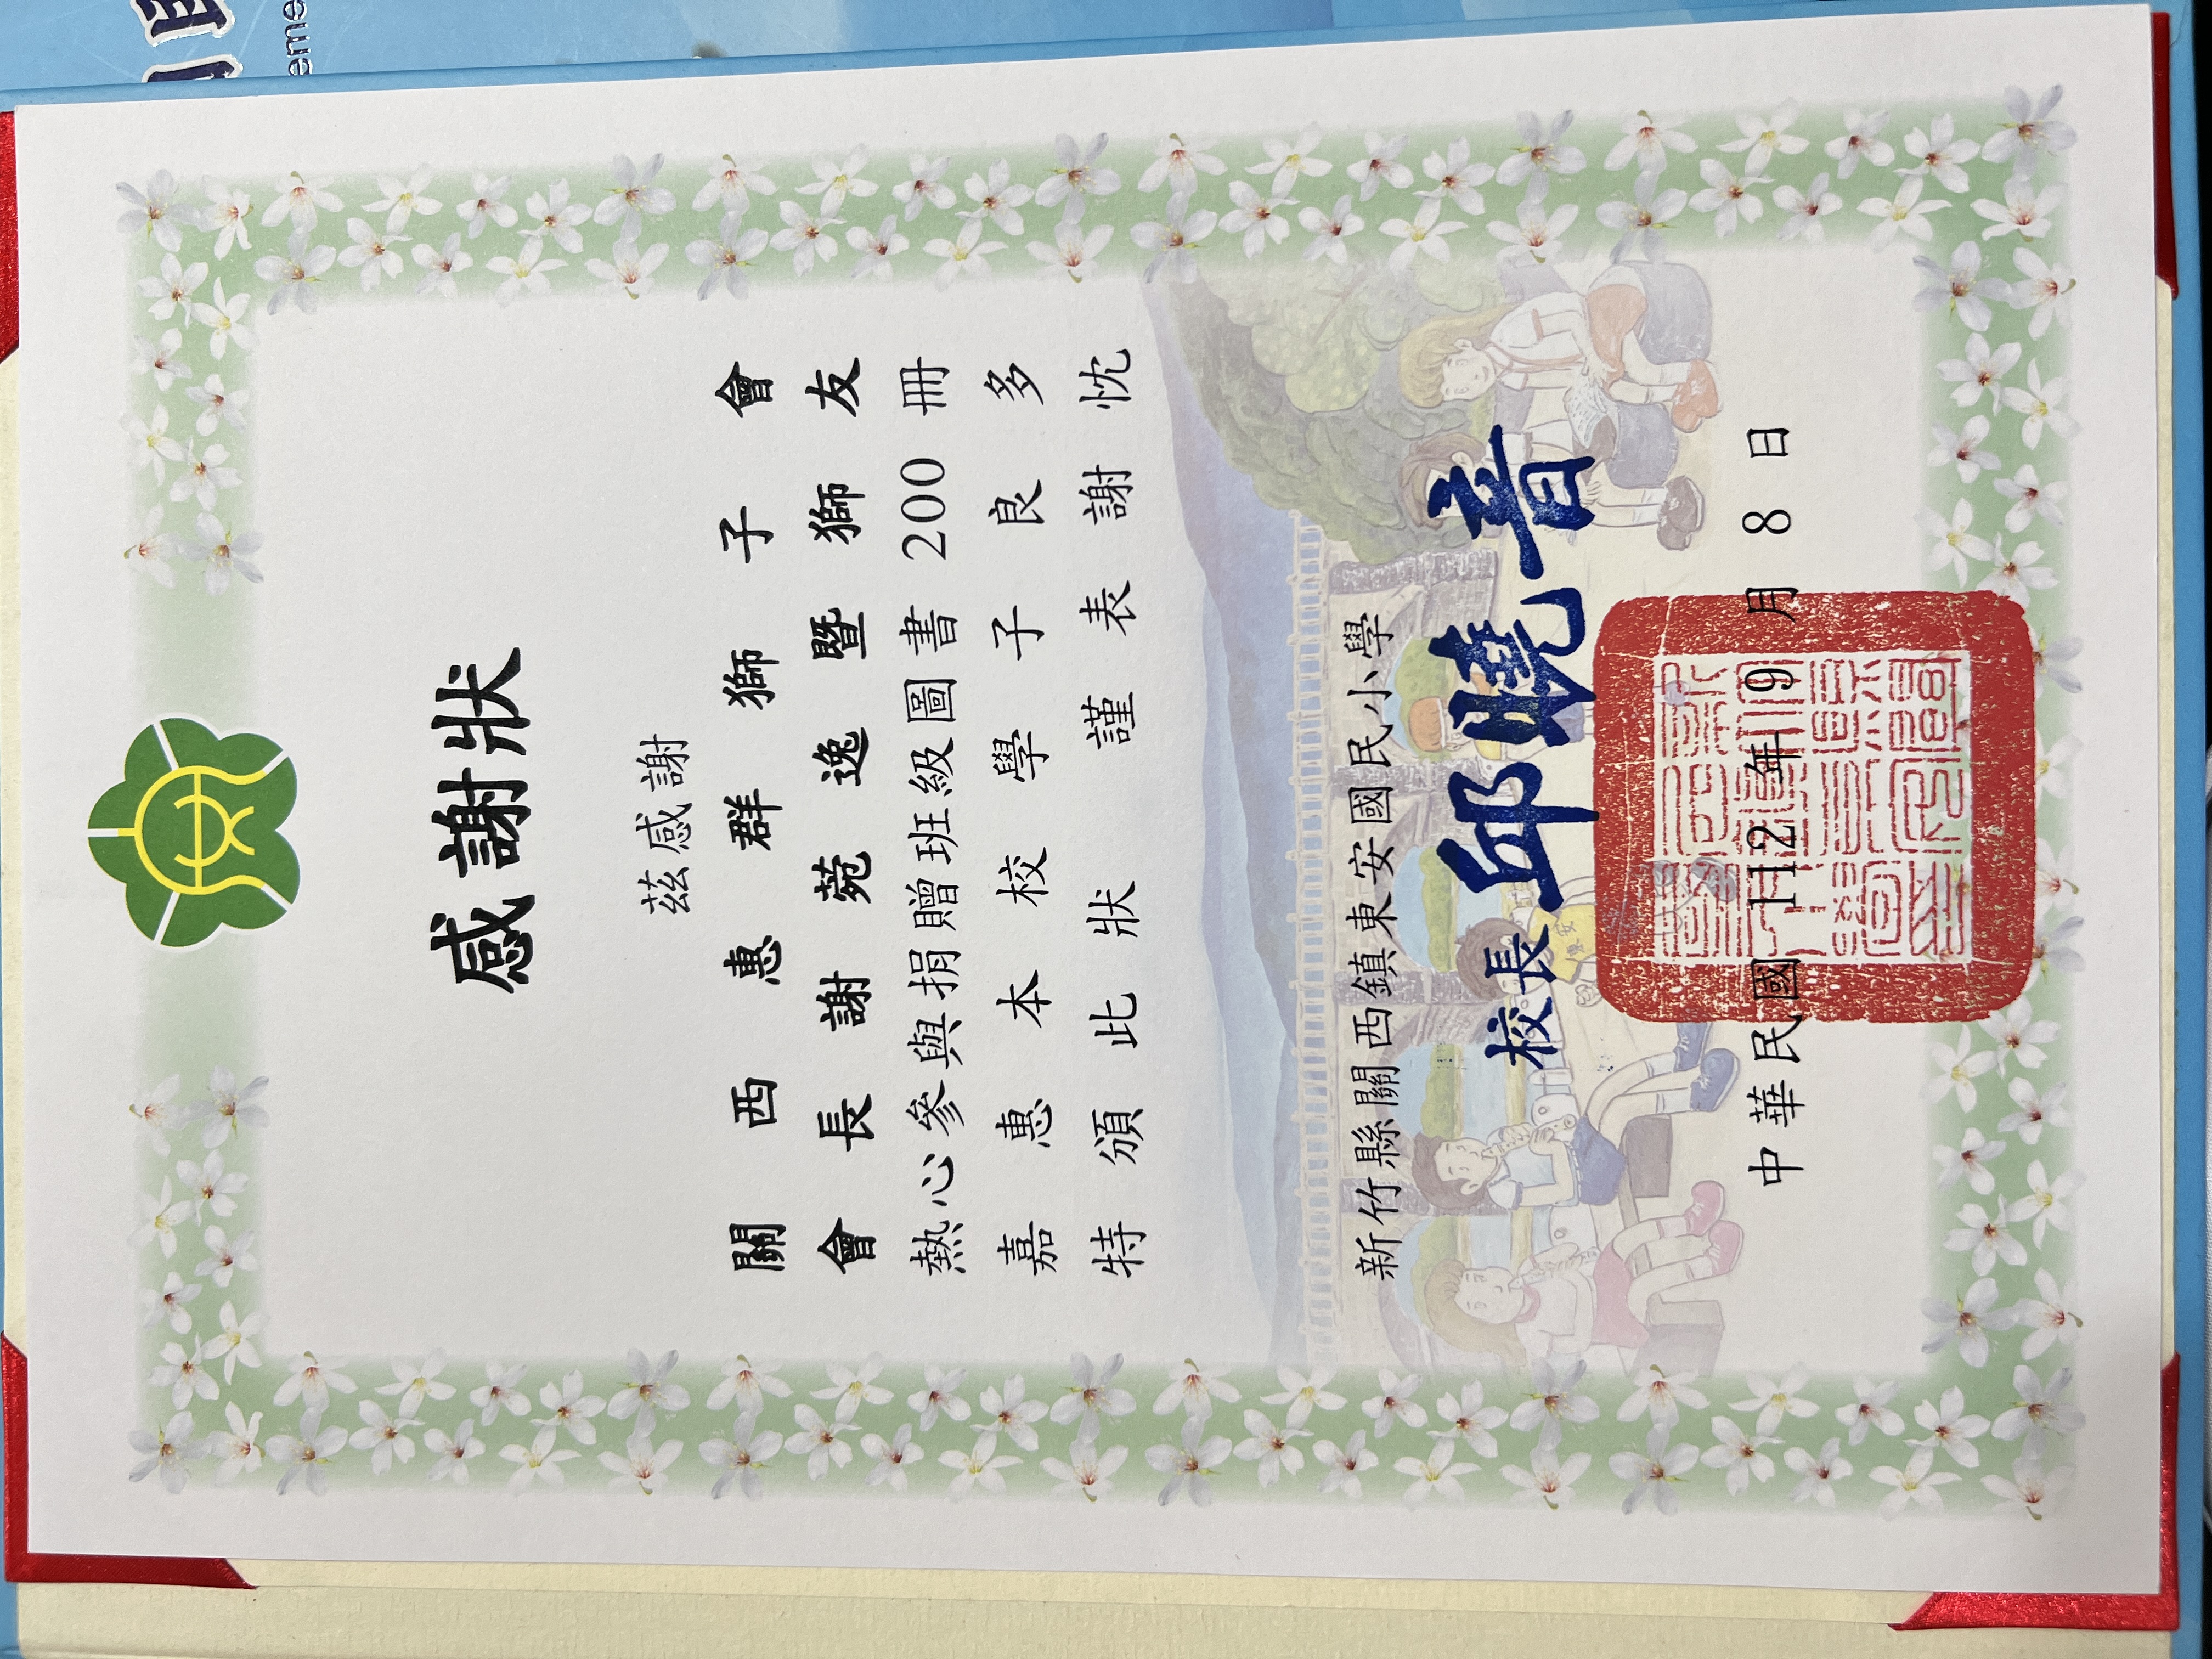 感謝狀
茲感謝
關西惠群獅子會
會長謝菀逸暨獅友
熱心參與捐贈班級圖書 200 冊
嘉惠本校學子良多
特頒此狀 謹表謝忱
新竹縣關西鎮東安國民小學
校長 邱曉音
中華民國 112 年 9 月 8 日
eme